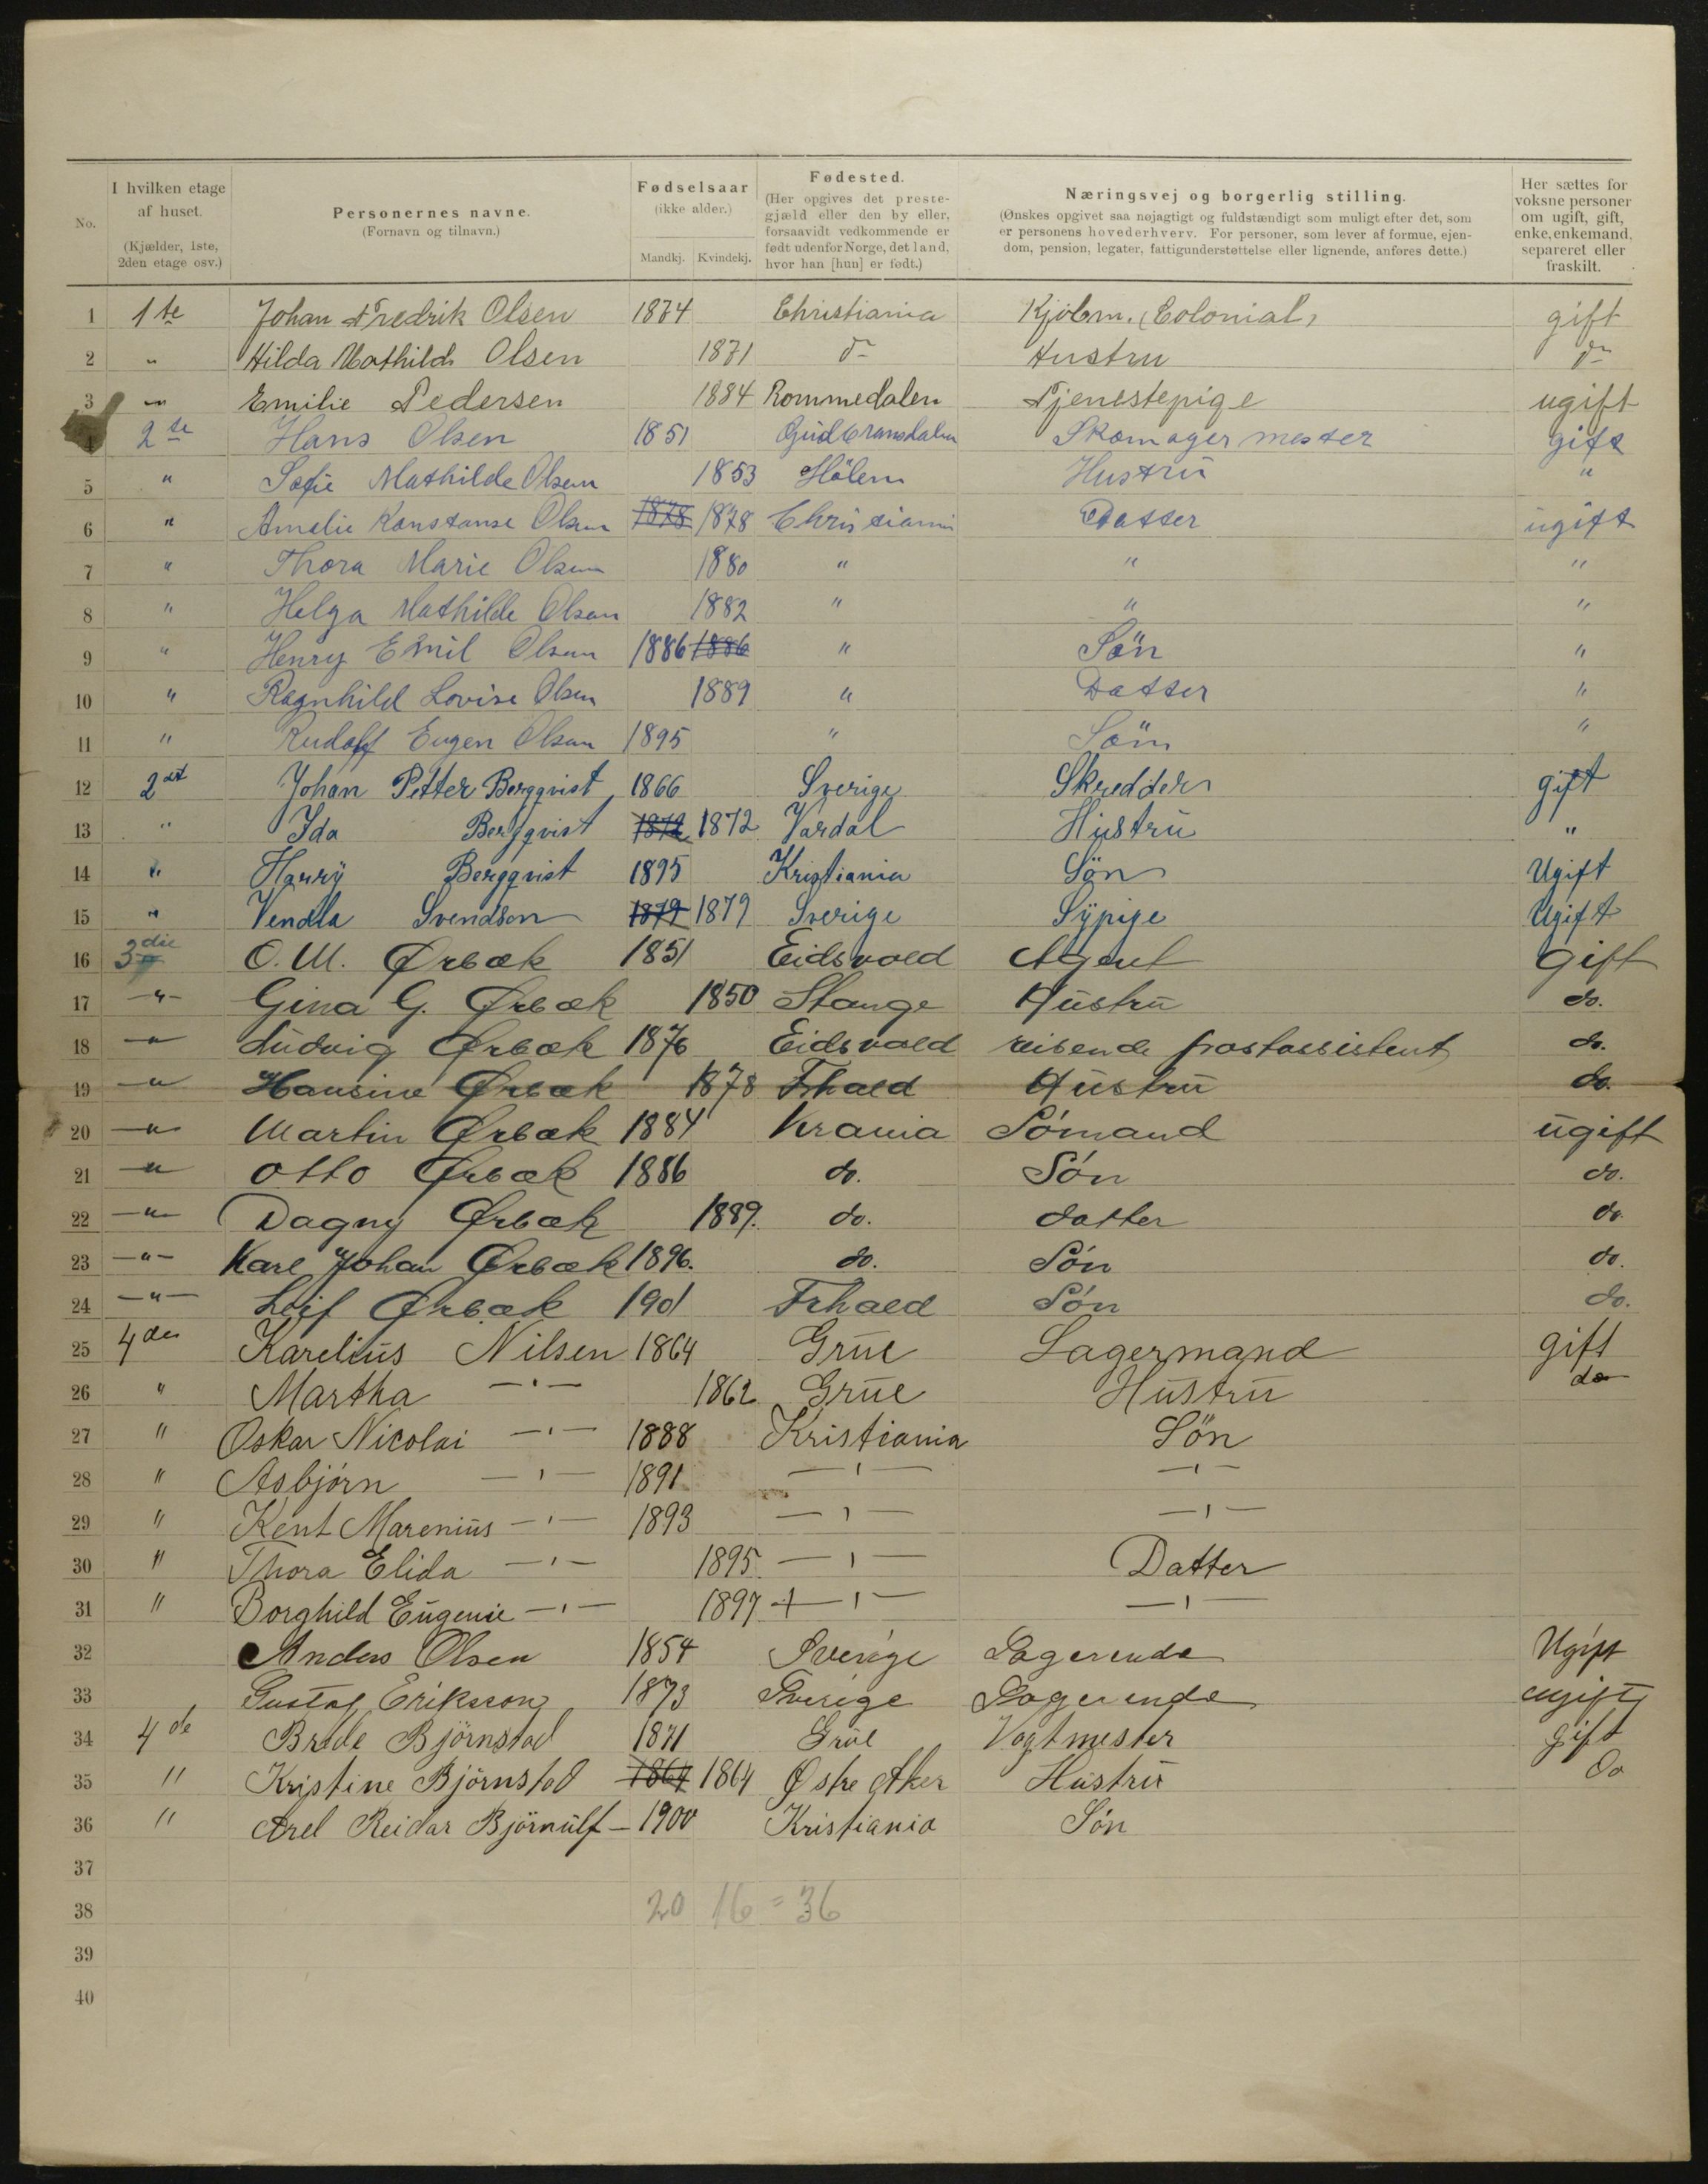 No.
I hvilken etage af huset. (Kjælder, 1ste, 2den etage osv.)
Personernes navne. (Fornavn og tilnavn.)
Fødselsaar (ikke alder.) Mandkj. Kvindekj.
Fødested. (Her opgives det prestegjæld eller den by eller, forsaavidt vedkommende er født udenfor Norge, det land, hvor han [hun] er født.)
Næringsvej og borgerlig stilling. (Ønskes opgivet saa nøjagtigt og fuldstændigt som muligt efter det, som er personens hovederhverv. For personer, som lever af formue, ejendom, pension, legater, fattigunderstøttelse eller lignende, anføres dette.)
Her sættes for voksne personer om ugift, gift, enke, enkemand, separeret eller fraskilt.
1 1te Johan Fredrik Olsen 1874 Christiania Kjøbm. (Colonial) gift
2 " Hilda Mathilde Olsen 1871 do Hustru do
3 " Emilie Pedersen 1884 Rommedalen Tjenestepige ugift
4 2te Hans Olsen 1851 Gudbransdalen Skomager mester gift
5 " Sofie Mathilde Olsen 1853 Hölen Hustrü "
6 " Amalie Konstanse Olsen 1878 1878 Christiania Datter ügift
7 " Thora Marie Olsen 1880 " " "
8 " Helga Mathilde Olsen 1882 " " "
9 " Henry Emil Olsen 1886 1886 " Sön "
10 " Ragnhild Lovise Olsen 1889 " Datter "
11 " Rudolf Eugen Olsen 1895 " Sön "
12 2det Johan Petter Bergqvist 1866 Sverige Skredder gift
13 " Ida Bergqvist 1872 1872 Vardal Hüstrü "
14 " Harry Bergqvist 1895 Kristiania Sön Ugift
15 " Vendla Svendson 1879 1879 Sverige Sÿpige Ugift
16 3die O. M. Ørbæk 1851 Eidsvold Agent Gift
17 -"- Gina G. Ørbæk 1850 Stange Hüstrü do.
18 -"- Lüdvig Ørbæk 1876 Eidsvold reisende postassistent do.
19 -"- Hansine Ørbæk 1878 Frhald Hüstrü do.
20 -"- Martin Ørbæk 1884 Krania Sómand ügift
21 -"- Otto Ørbæk 1886 do. Són do.
22 -"- Dagny Ørbæk 1889. do. datter do.
23 -"- Karl Johan Ørbæk 1896. do. Són do.
24 -"- Leif Ørbæk 1901 Frhald Són do.
25 4de Kareliüs Nilsen 1864 Grüe Lagermand gift
26 " Martha -"- 1862 Grüe Hüstrü do
27 " Oskar Nicolai -"- 1888 Kristiania Sön
28 " Asbjórn -"- 1891 -"- -"-
29 " Kent Mareniüs -"- 1893 -"- -"-
30 " Thora Elida -"- 1895. -"- Datter
31 " Borghild Eügenie -"- 1897 -"- -"-
32 Anders Olsen 1854 Sverige Logerende Ugift
33 Gustaf Eriksson 1873 Sverige Logerende ugift
34 4de Brede Björnstad 1871 Grüe Vogtmester gift
35 " Kristine Björnstad 1864 1864 Østre Aker Hüstrü Do
36 " Arel Reidar Björnülf - 1900 Kristiania Són
37
38 20 16 = 36
39
40